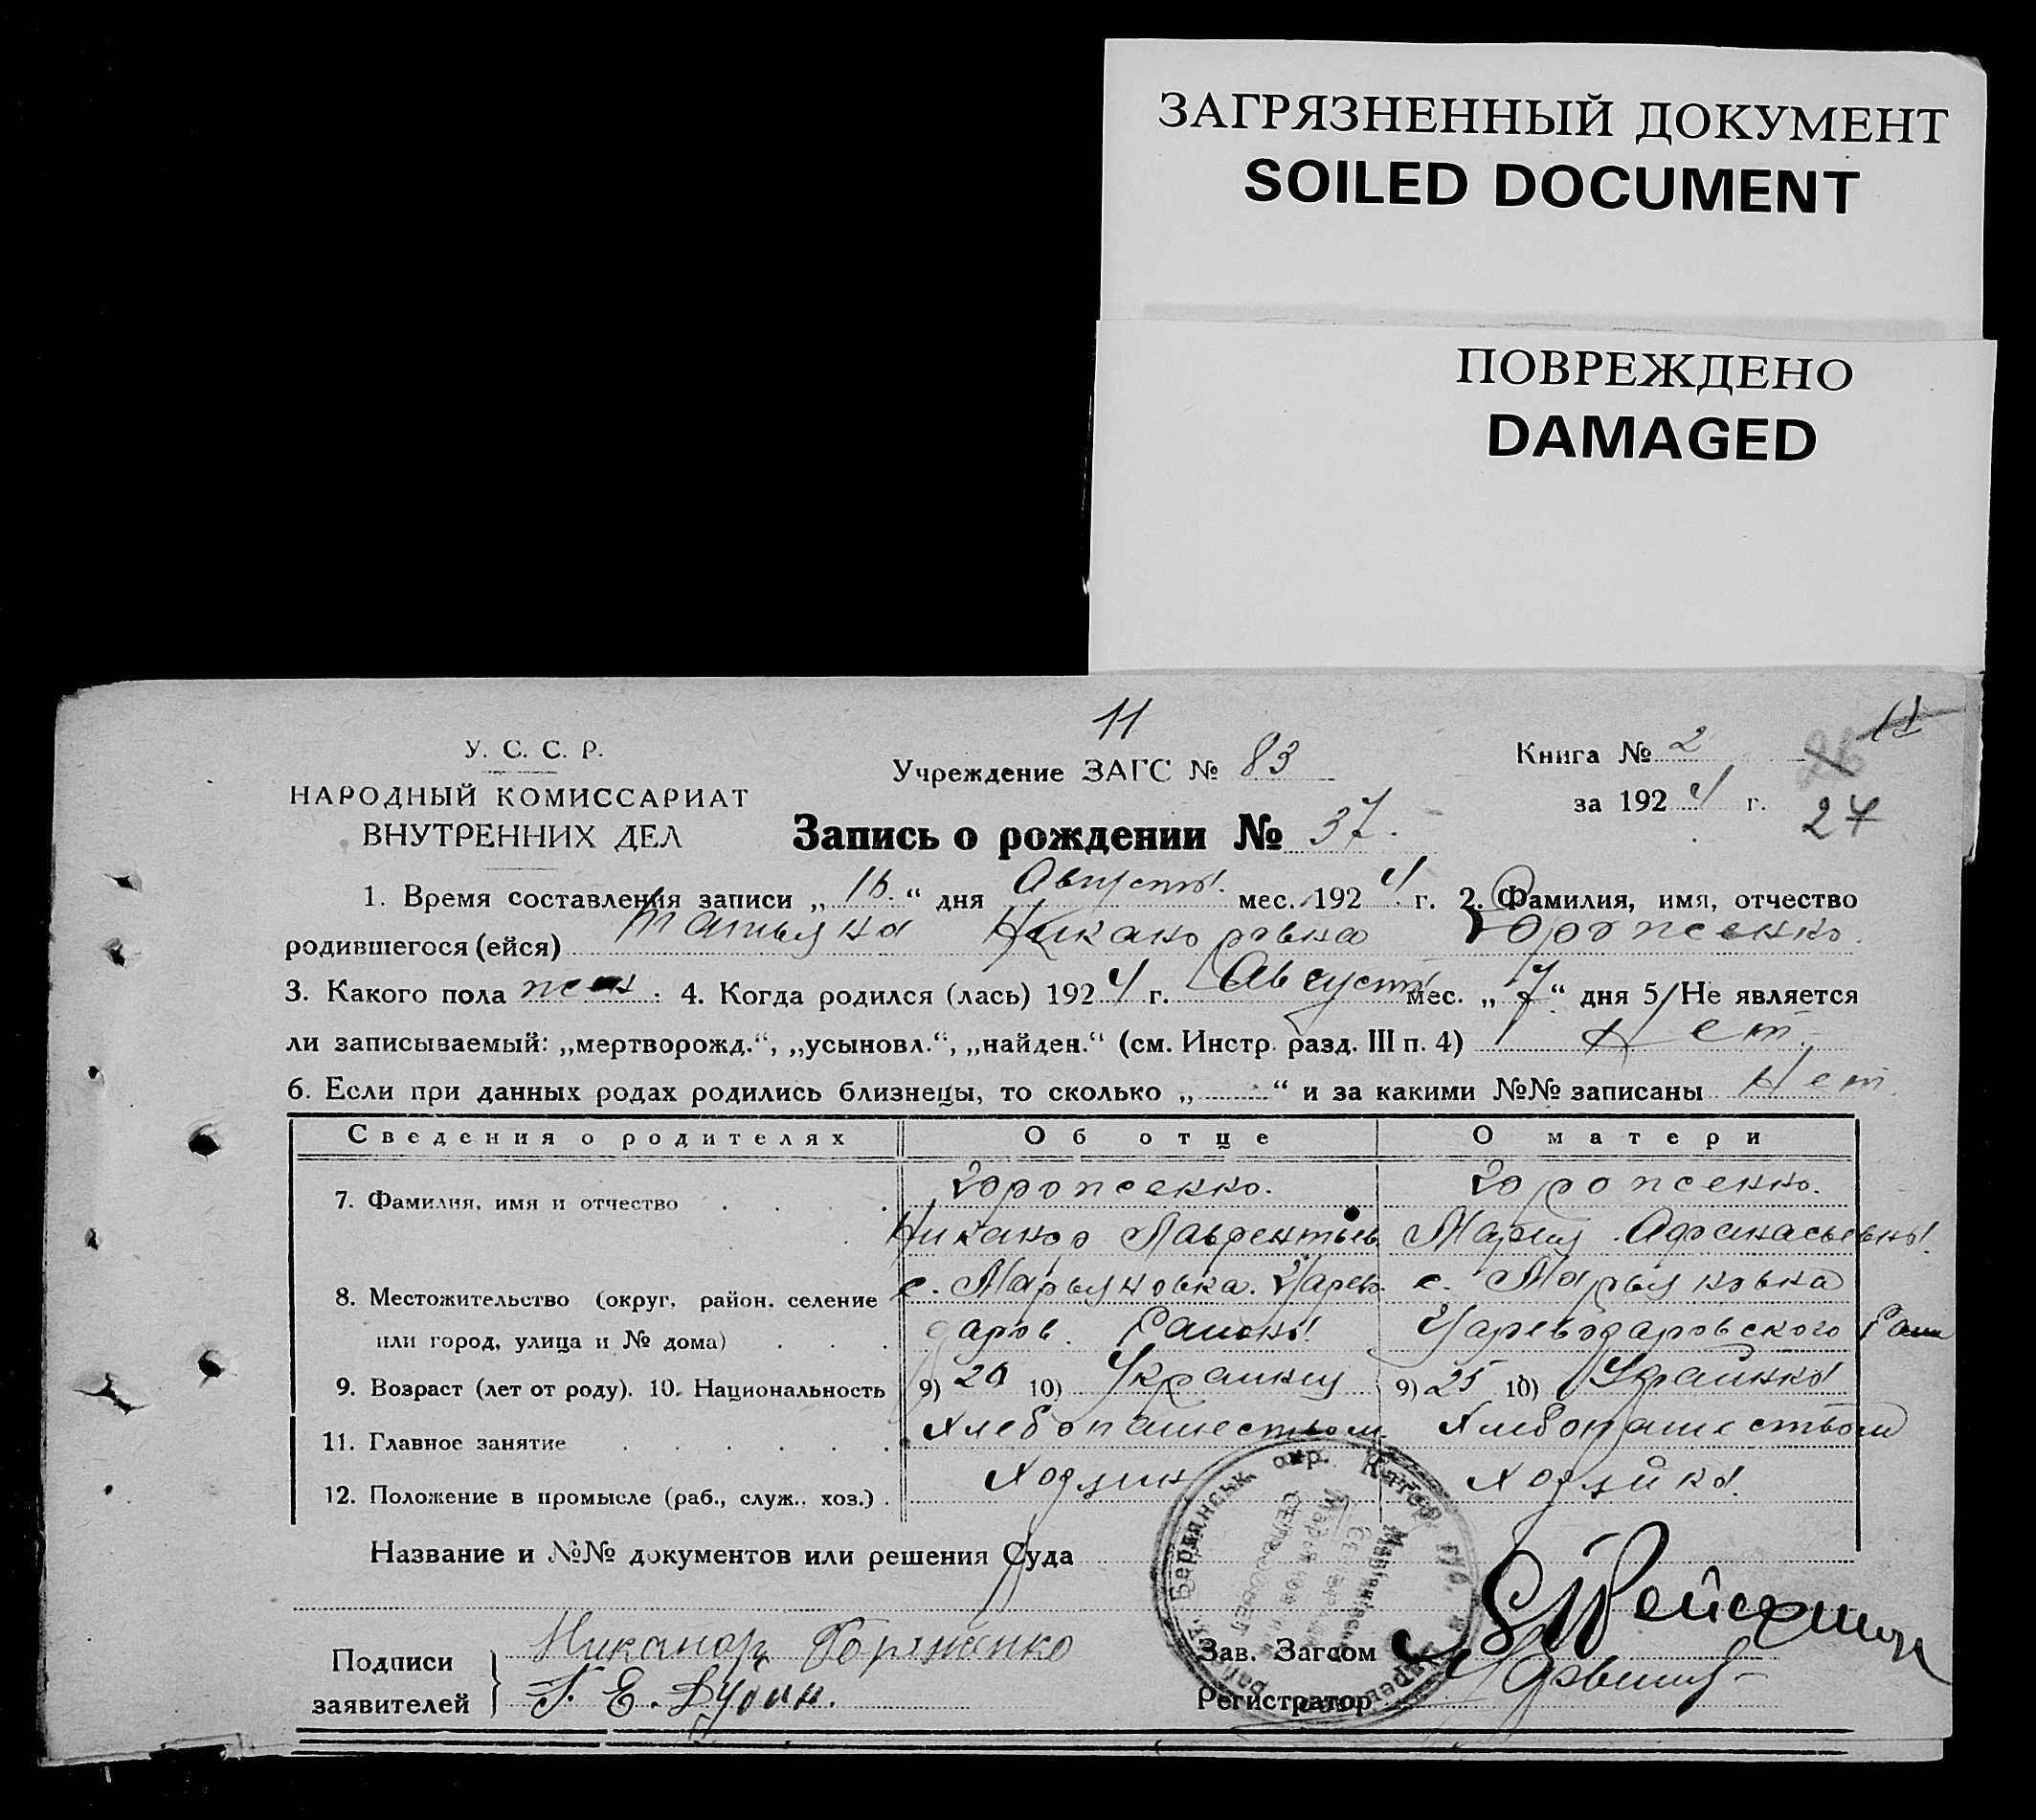 ЗАГРЯЗНЕННЫЙ ДОКУМЕНТ
SOILED DOCUMENT
ПОВРЕЖДЕНО
DAMAGED
11
У. С. С. Р.
НАРОДНЫЙ КОМИССАРИАТ
ВНУТРЕННИХ ДЕЛ
Учреждение ЗАГС № 83
Книга № 2
за 1924 г.
24
Запись о рождении № 37.
1. Время составления записи „ 16. “ дня Августа. мес. 1924 г. 2. Фамилия, имя, отчество
родившегося (ейся) Татьяна Никаноровна Горопсенко.
3. Какого пола жен. 4. Когда родился (лась) 1924 г. Август мес. „ 7 “ дня 5. Не является
ли записываемый: „мертворожд.“, „усыновл.“, „найден.“ (см. Инстр. разд. III п. 4) Нет.
6. Если при данных родах родились близнецы, то сколько „ “ и за какими №№ записаны Нет
Сведения о родителях Об отце О матери
7. Фамилия, имя и отчество Горопсенко. Горопсенко.
Никанор Лаврентьев. Мария Афанасьевна.
8. Местожительство (округ, район, селение с. Марьяновка. Царево- с. Марьяновка
или город, улица и № дома) даров. Района. Цареводаровского Рай
9. Возраст (лет от роду). 10. Национальность 9) 26 10) Украинец 9) 25 10) Украинка
11. Главное занятие Хлебопашеством Хлебопашеством
12. Положение в промысле (раб., служ., хоз.) Хозяин Хозяйка.
Название и №№ документов или решения Суда
Бердянськ. окр. Катер. губ.
Подписи
заявителей
Никанор Горяженко
Г. Е. Дубин.
Зав. Загсом
Регистратор